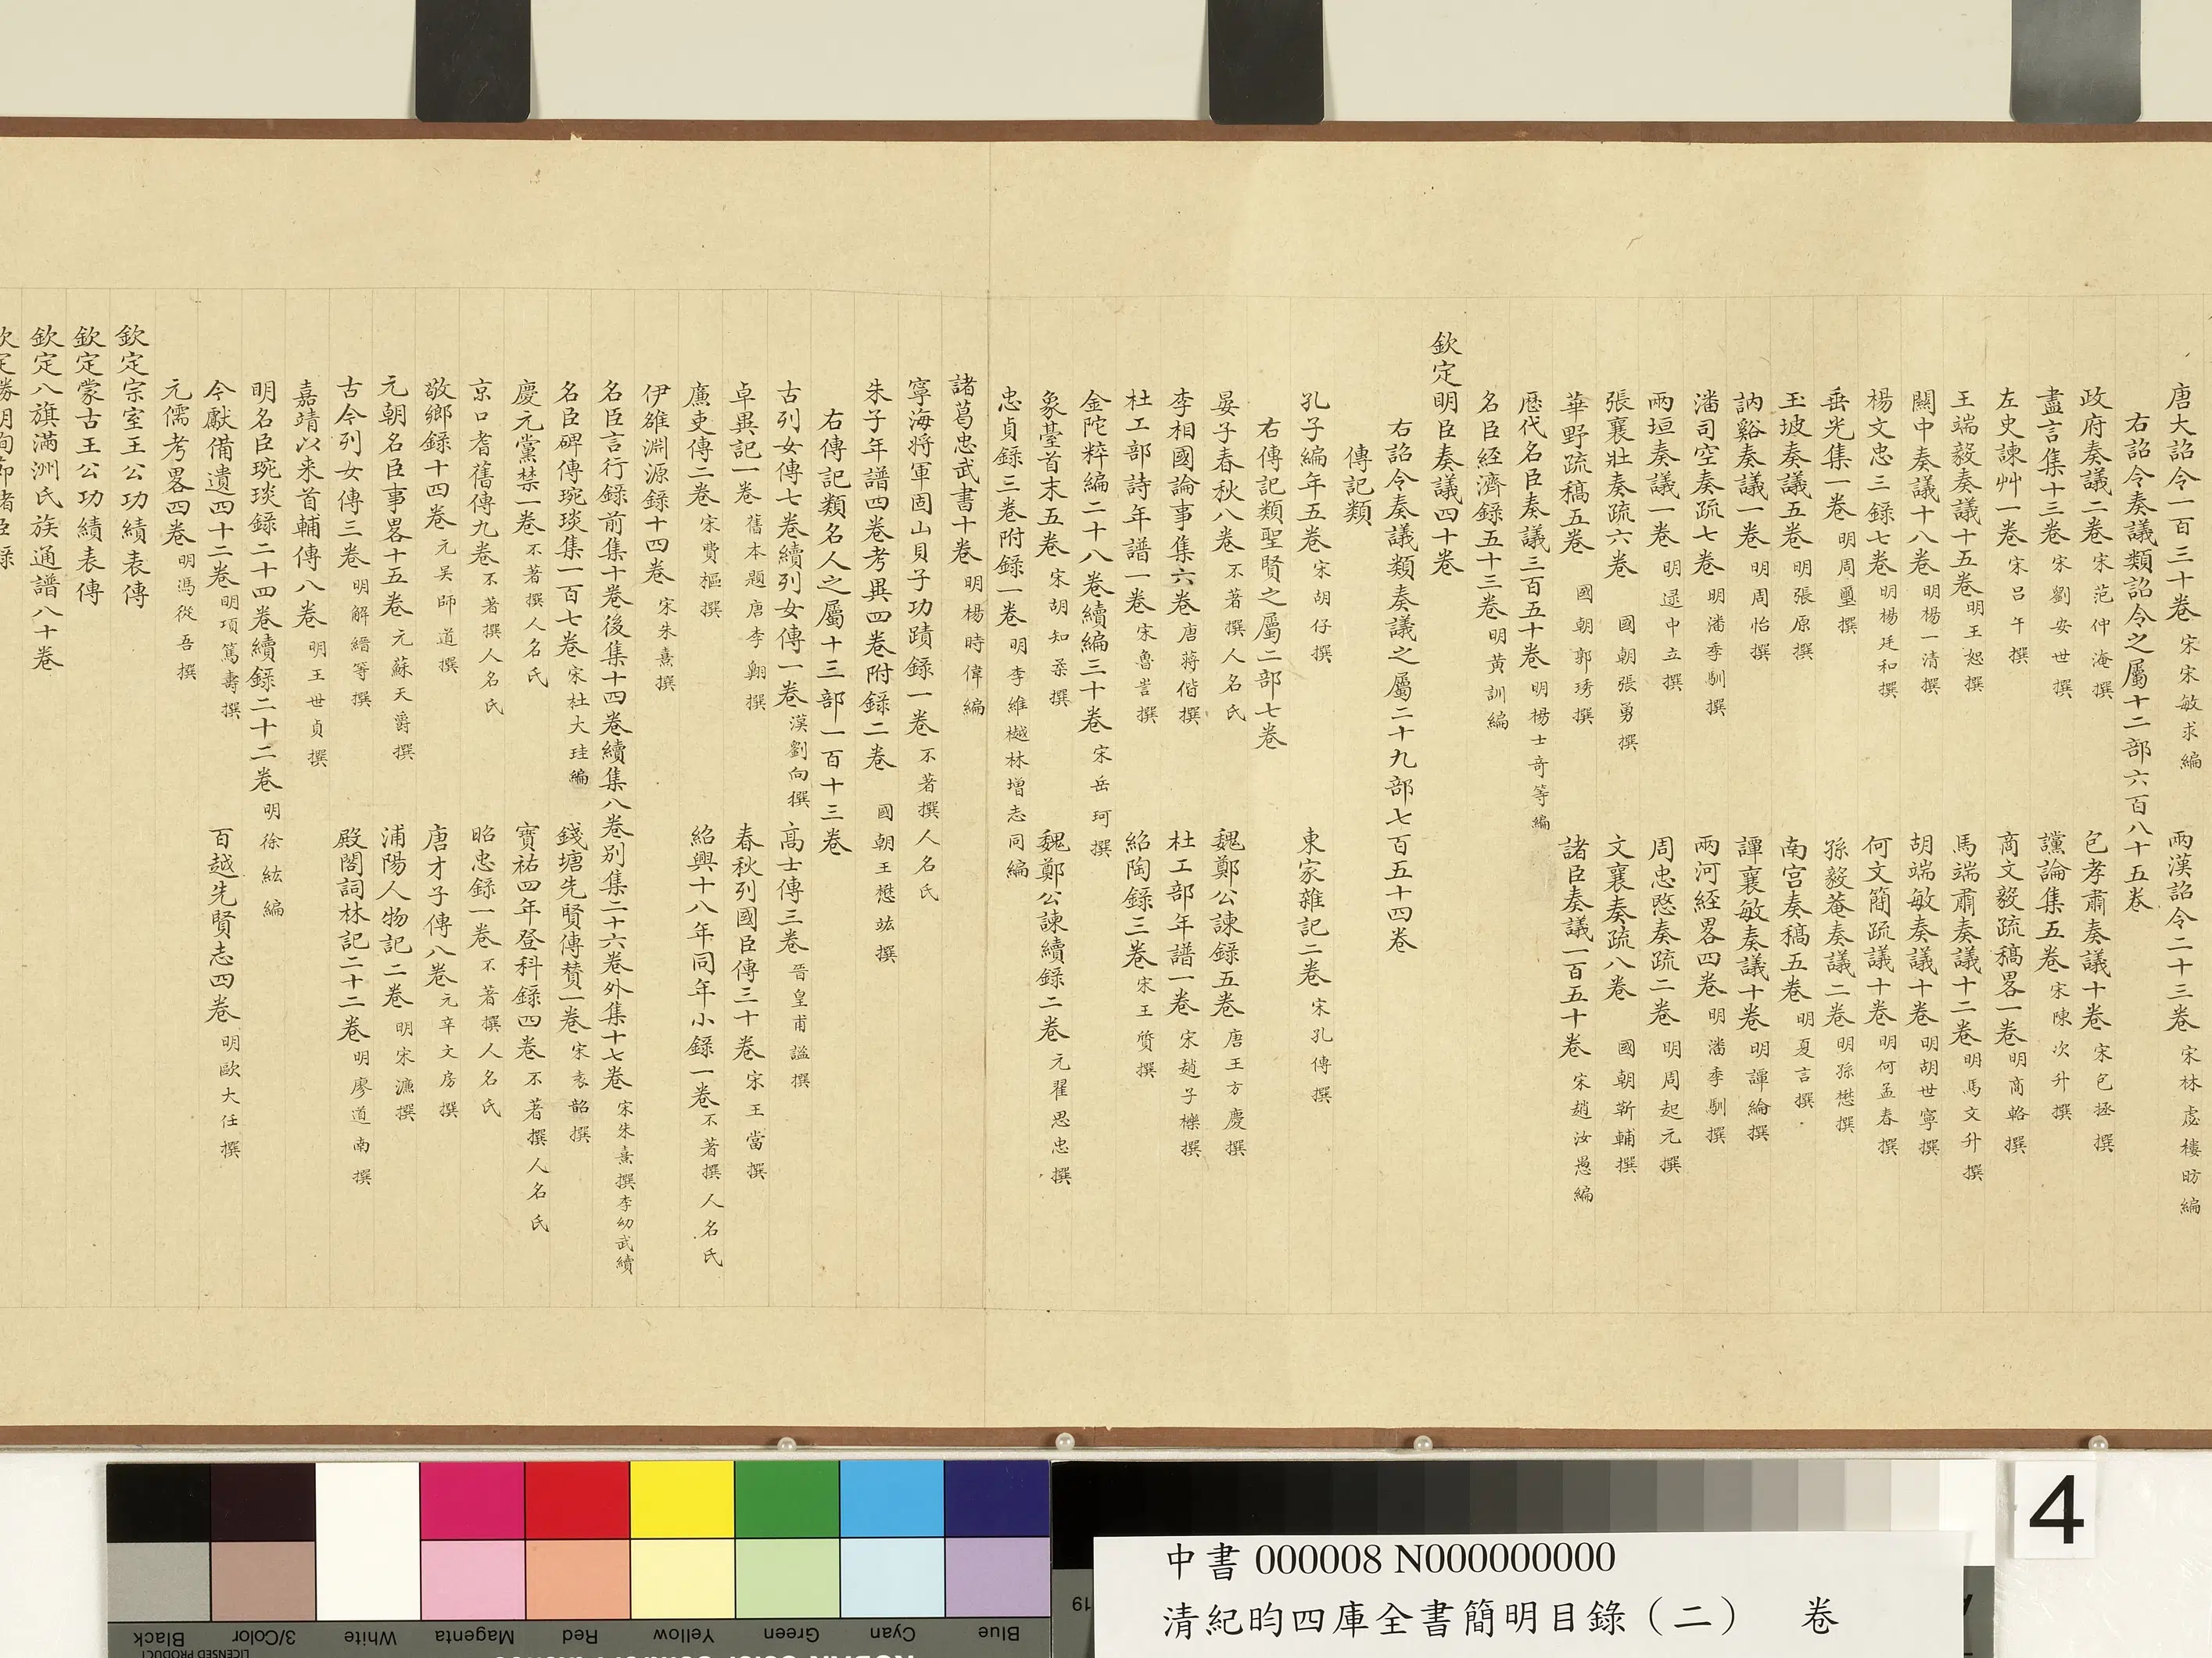 唐大詔令一百三十卷 宋宋敏求編 兩漢詔令二十三卷 宋林虙樓昉編
右詔令奏議類詔令之屬十二部六百八十五卷
政府奏議二卷 宋范仲淹撰 包孝肅奏議十卷 宋包拯撰
盡言集十三卷 宋劉安世撰 讜論集五卷 宋陳次升撰
左史諫艸一卷 宋呂午撰 商文毅疏稿畧一卷 明商輅撰
王端毅奏議十五卷 明王恕撰 馬端肅奏議十二卷 明馬文升撰
關中奏議十八卷 明楊一清撰 胡端敏奏議十卷 明胡世寧撰
楊文忠三録七卷 明楊廷和撰 何文簡疏議十卷 明何孟春撰
垂光集一卷 明周璽撰 孫毅菴奏議二卷 明孫懋撰
玉坡奏議五卷 明張原撰 南宮奏稿五卷 明夏言撰
訥谿奏議一卷 明周怡撰 譚襄敏奏議十卷 明譚綸撰
潘司空奏疏七卷 明潘季馴撰 兩河経畧四卷 明潘季馴撰
兩垣奏議一卷 明逯中立撰 周忠愍奏疏二卷 明周起元撰
張襄壯奏疏六卷 國朝張勇撰 文襄奏疏八卷 國朝靳輔撰
華野疏稿五卷 國朝郭琇撰 諸臣奏議一百五十卷 宋趙汝愚編
歴代名臣奏議三百五十卷 明楊士奇等編
名臣経濟録五十三卷 明黃訓編
欽定明臣奏議四十卷
右詔令奏議類奏議之屬二十九部七百五十四卷
傳記類
孔子編年五卷 宋胡仔撰 東家雜記二卷 宋孔傳撰
右傳記類聖賢之屬二部七卷
晏子春秋八卷 不著撰人名氏 魏鄭公諫録五卷 唐王方慶撰
李相國論事集六卷 唐蔣偕撰 杜工部年譜一卷 宋趙子櫟撰
杜工部詩年譜一卷 宋魯訔撰 紹陶録三卷 宋王質撰
金陀粹編二十八卷續編三十卷 宋岳珂撰
象臺首末五卷 宋胡知柔撰 魏鄭公諫續錄二卷 元翟思忠撰
忠貞録三卷附録一卷 明李維樾林增志同編
諸葛忠武書十卷 明楊時偉編
寧海將軍固山貝子功蹟録一卷 不著撰人名氏
朱子年譜四卷考異四卷附録二卷 國朝王懋竑撰
右傳記類名人之屬十三部一百十三卷
古列女傳七卷續列女傳一卷 漢劉向撰 高士傳三卷 晉皇甫謐撰
卓異記一卷 舊本題唐李翺撰 春秋列國臣傳三十卷 宋王當撰
廉吏傳二卷 宋費樞撰 紹興十八年同年小録一卷 不著撰人名氏
伊雒淵源録十四卷 宋朱熹撰
名臣言行録前集十卷後集十四卷續集八卷别集二十六卷外集十七卷 宋朱熹撰李幼武續
名臣碑傳琬琰集一百七卷 宋杜大珪編 錢塘先賢傳賛一卷 宋袁韶撰
慶元黨禁一卷 不著撰人名氏 寶祐四年登科録四卷 不著撰人名氏
京口耆舊傳九卷 不著撰人名氏 昭忠録一卷 不著撰人名氏
敬鄉録十四卷 元吴師道撰 唐才子傳八卷 元辛文房撰
元朝名臣事畧十五卷 元蘇天爵撰 浦陽人物記二卷 明宋濂撰
古今列女傳三卷 明解縉等撰 殿閣詞林記二十二卷 明廖道南撰
嘉靖以来首輔傳八卷 明王世貞撰
明名臣琬琰録二十四卷續録二十二卷 明徐紘編
今獻備遺四十二卷 明項篤壽撰 百越先賢志四卷 明歐大任撰
元儒考畧四卷 明馮從吾撰
欽定宗室王公功績表傳
欽定蒙古王公功績表傳
欽定八旗滿洲氏族通譜八十卷
中書 000008 N000000000
清紀昀四庫全書簡明目錄(二) 卷
4
Black 3/Color White Magenta Red Yellow Green Cyan Blue
LICENSED PRODUCT
19